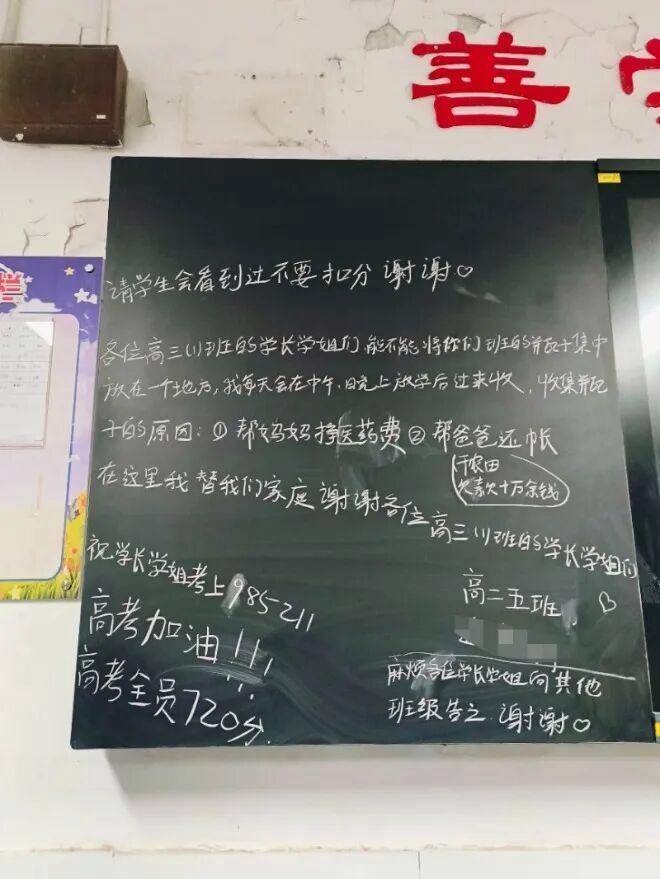 善
栏
请学生会看到过不要扣分 谢谢♡
各位高三(1)班的学长学姐们,能不能将你们班的并瓦子集中
放在一个地方,我每天会在中午、日免上放学后过来收,收集并瓦
子的原因:① 帮妈妈挣医药费② 帮爸爸还帐
干农田
欠款十万余钱
在这里我替我们家庭谢谢各位高三(1)班的学长学姐们
高二五班 ♡
祝学长学姐考上985 211
高考加油!!!
高考全员720分.
麻烦各位学长学姐向其他
班级告之 谢谢♡